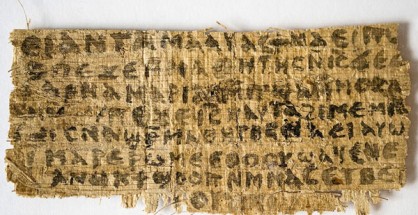 ⲉⲓ ⲁⲛ ⲧⲁⲙⲁⲁⲩ ⲁⲥϯ ⲛⲁⲉⲓ ⲡⲱ
ⲥ ⲡⲉϫⲉ ⲙⲙⲁⲑⲏⲧⲏⲥ ⲛⲓⲥ ϫⲉ ⲥ
ⲁⲣⲛⲁ ⲙⲁⲣⲓⲁⲙ ⲙⲡϣⲁ ⲙⲙⲟⲥ ⲁ
ⲡⲉϫⲉ ⲓⲥ ⲛⲁⲩ ⲧⲁϩⲓⲙⲉ ⲙⲛ
ⲥⲛⲁϣⲣⲙⲁⲑⲏⲧⲏⲥ ⲛⲁⲉⲓ ⲁⲩⲱ
ⲙⲁⲣⲉⲣⲱⲙⲉ ⲉⲑⲟⲟⲩ ϣⲁϥⲉ ⲛⲉ
ⲁⲛⲟⲕ ϯϣⲟⲟⲡ ⲛⲙⲙⲁⲥ ⲉⲧⲃⲉ ⲡ